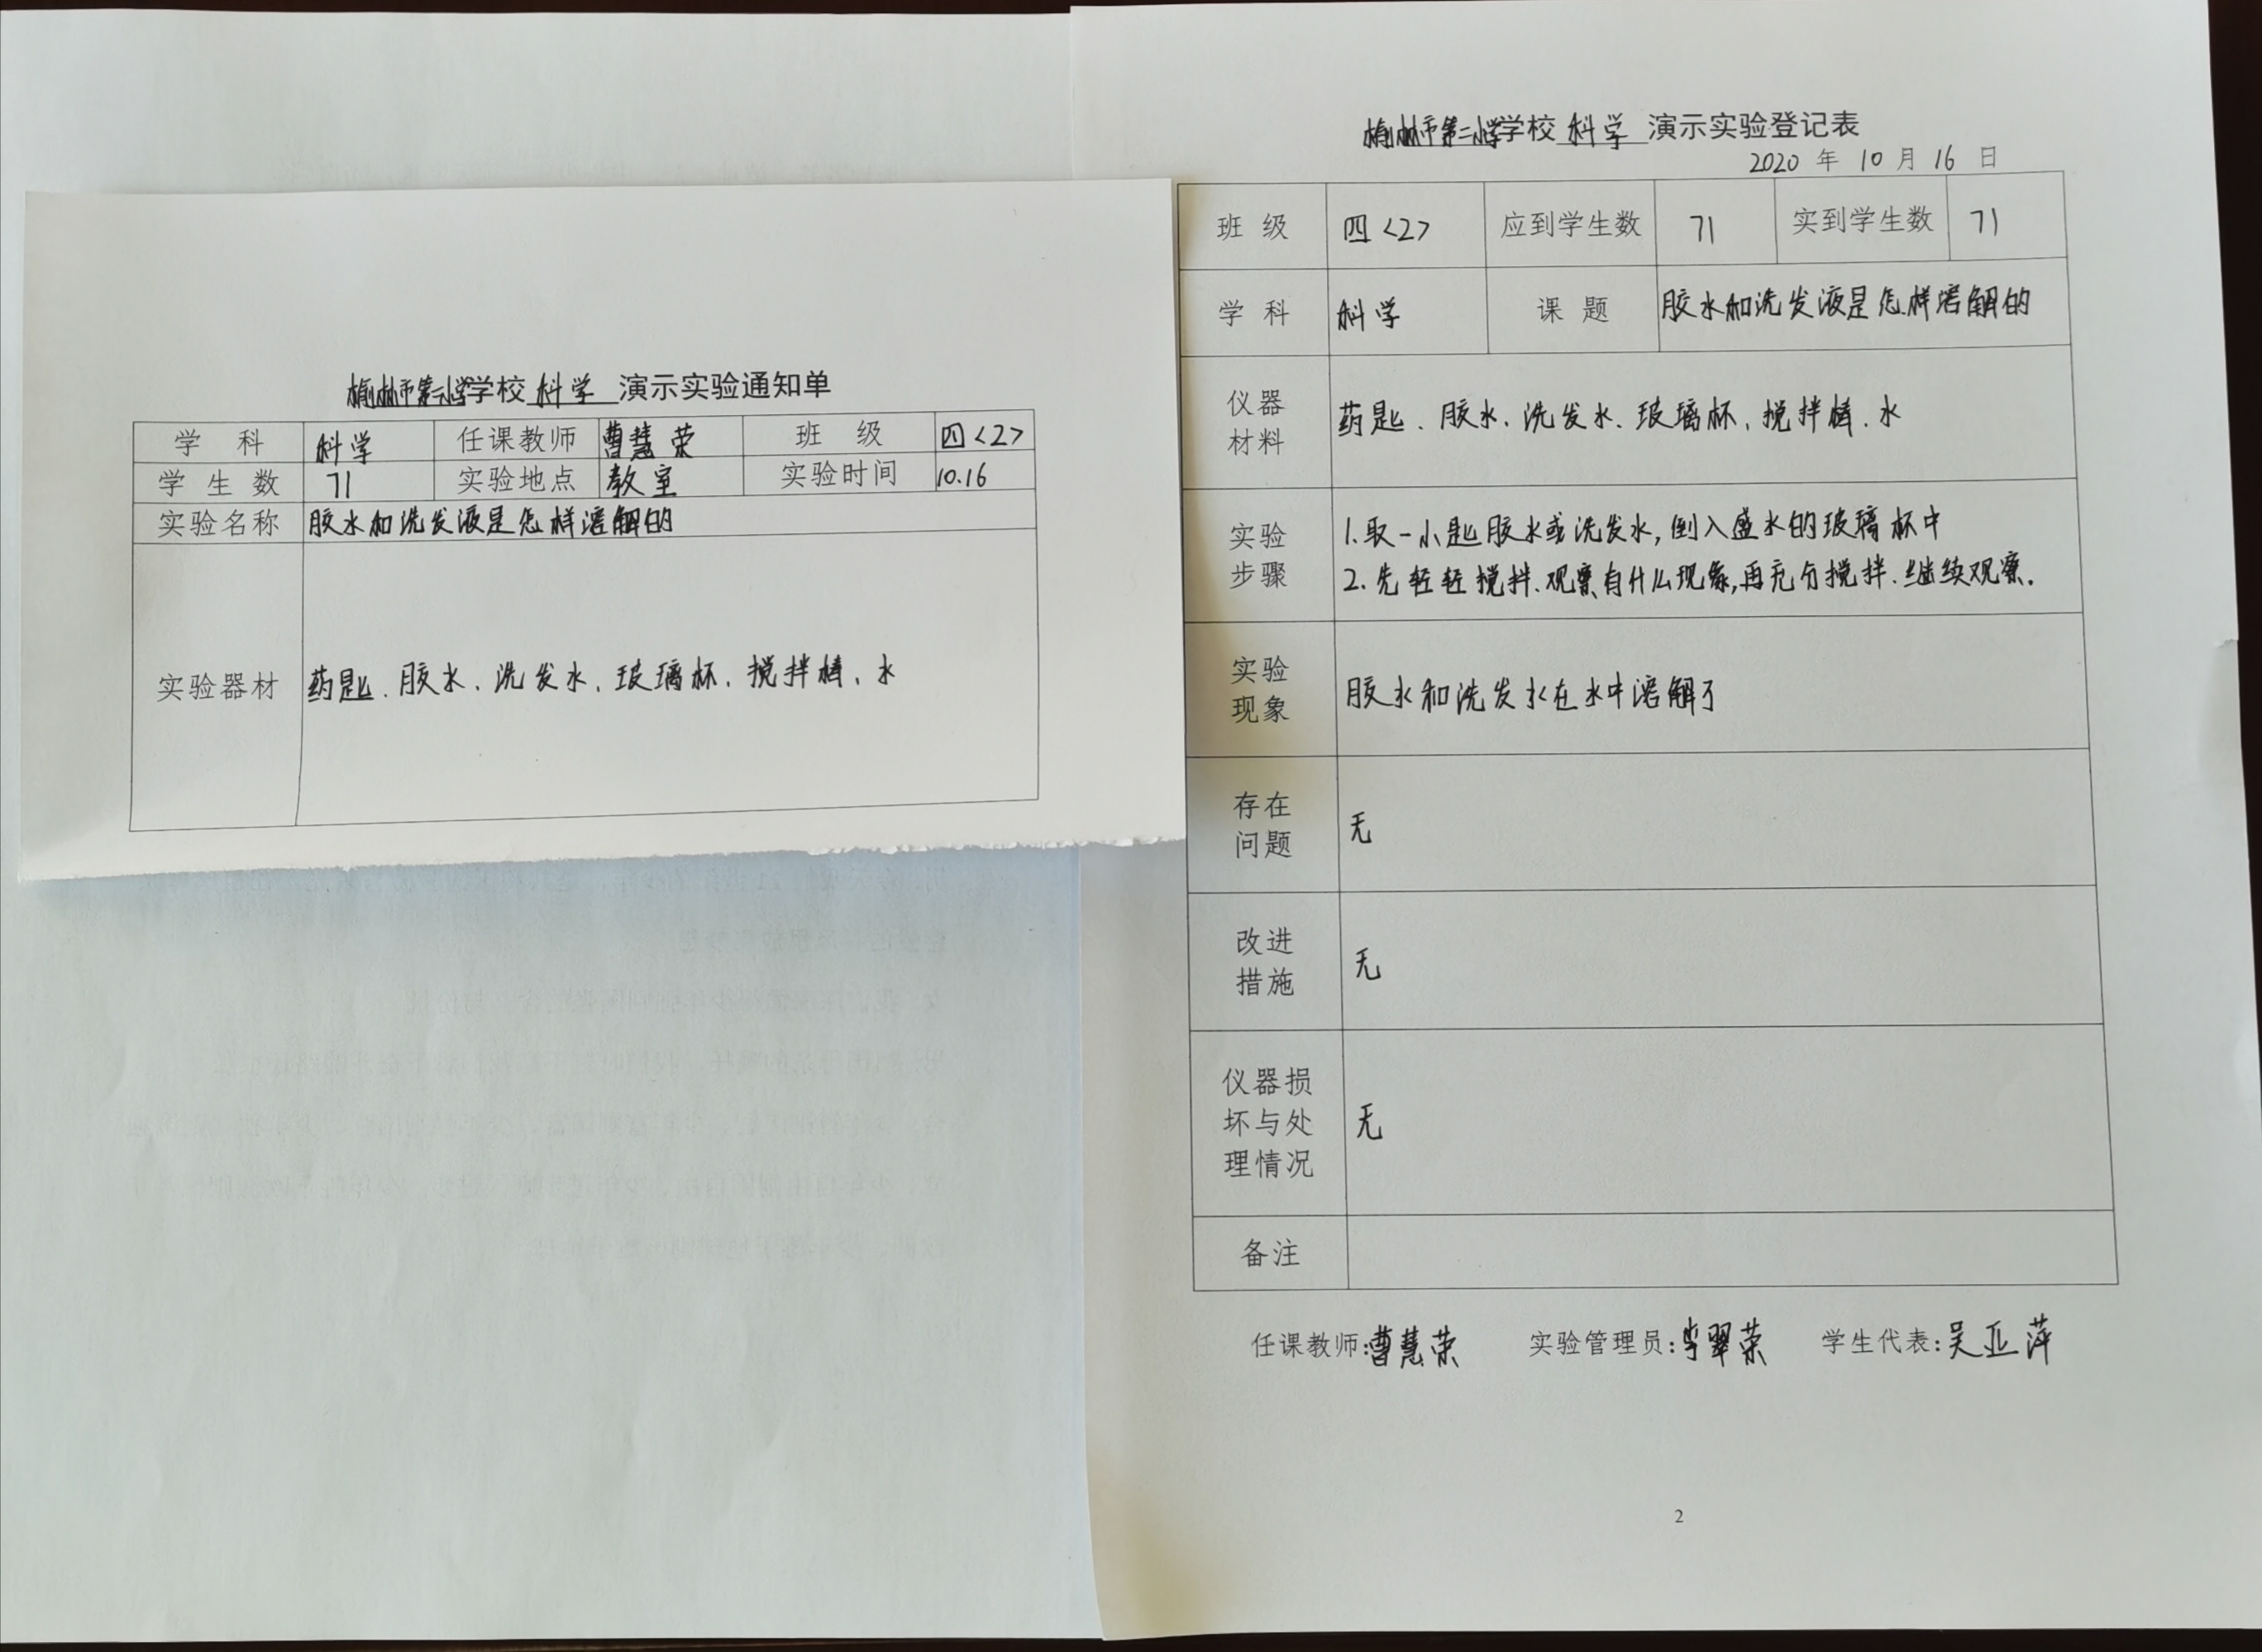 榆林市第二小学学校 科学 演示实验通知单
学 科 科学 任课教师 曹慧荣 班 级 四<2>
学 生 数 71 实验地点 教室 实验时间 10.16
实验名称 胶水和洗发液是怎样溶解的
实验器材 药匙、胶水、洗发水、玻璃杯、搅拌棒、水
榆林市第二小学学校 科学 演示实验登记表
2020 年 10 月 16 日
班 级 四<2> 应到学生数 71 实到学生数 71
学 科 科学 课 题 胶水和洗发液是怎样溶解的
仪器
材料
药匙、胶水、洗发水、玻璃杯、搅拌棒、水
实验
步骤
1.取一小匙胶水或洗发水,倒入盛水的玻璃杯中
2.先轻轻搅拌、观察有什么现象,再充分搅拌、继续观察.
实验
现象
胶水和洗发水在水中溶解了
存在
问题
无
改进
措施
无
仪器损
坏与处
理情况
无
备注
任课教师:曹慧荣 实验管理员:李翠荣 学生代表:吴亚萍
2